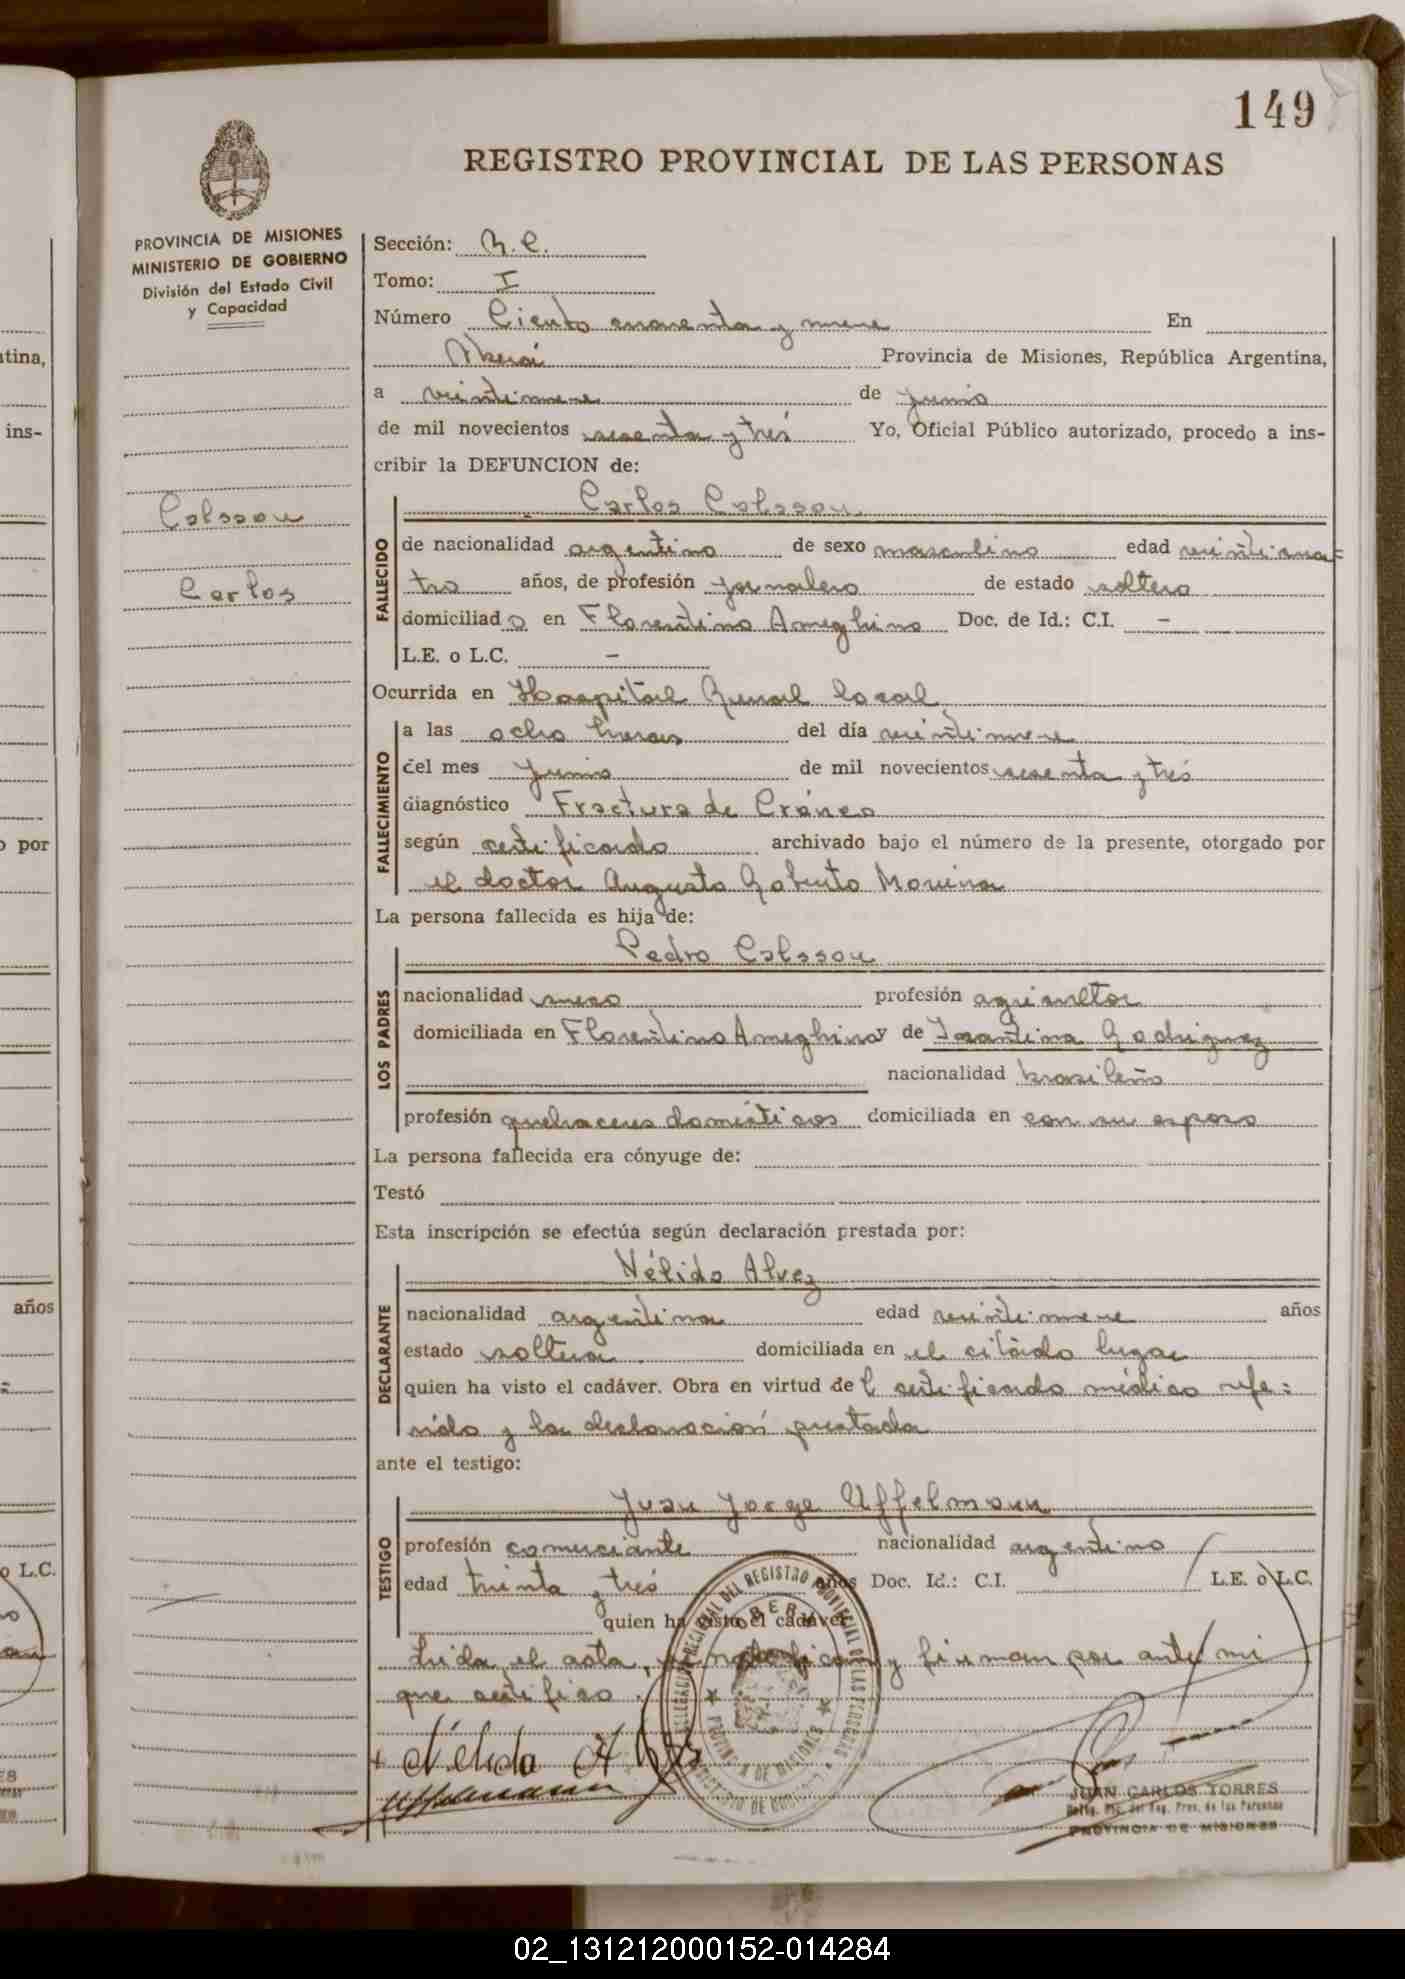 149
REGISTRO PROVINCIAL DE LAS PERSONAS
PROVINCIA DE MISIONES
MINISTERIO DE GOBIERNO
División del Estado Civil
y Capacidad
Colsson
Carlos
Sección: R. C.
Tomo: I
Número Ciento cuarenta y nueve En
Oberá Provincia de Misiones, República Argentina,
a veintinueve de junio
de mil novecientos sesenta y trés Yo, Oficial Público autorizado, procedo a ins-
cribir la DEFUNCION de:
Carlos Colsson
FALLECIDO
de nacionalidad argentino de sexo masculino edad veinticua=
tro años, de profesión jornalero de estado soltero
domiciliad o en Florentino Ameghino Doc. de Id.: C.I. -
L.E. o L.C. -
Ocurrida en Hospital Rural local
FALLECIMIENTO
a las ocho horas del día veintinueve
del mes junio de mil novecientos sesenta y trés
diagnóstico Fractura de Cráneo
según certificado archivado bajo el número de la presente, otorgado por
el doctor Augusto Roberto
La persona fallecida es hija de:
Pedro Colsson
LOS PADRES
nacionalidad sueco profesión agricultor
domiciliada en Florentino Ameghino y de Rodriguez
nacionalidad brasileña
profesión quehaceres domésticos domiciliada en con su esposo
La persona fallecida era cónyuge de:
Testó
Esta inscripción se efectúa según declaración prestada por:
Nélida Alvez
DECLARANTE
nacionalidad argentina edad veintinueve años
estado soltera domiciliada en el citado lugar
quien ha visto el cadáver. Obra en virtud de l certificado médico refe=
rido y la declaración prestada
ante el testigo:
Juan Jorge Uffelmann
TESTIGO
profesión comerciante nacionalidad argentino
edad trinta y trés años Doc. Id.: C.I. L.E. o L.C.
quien ha visto el cadáver
Leida el acta, se notifican y firman por ante mi
que certifico.
Nélida
Uffelmann
JUAN CARLOS TORRES
PROVINCIA DE MISIONES
tina,
ins-
o por
años
o L.C.
02_131212000152-014284